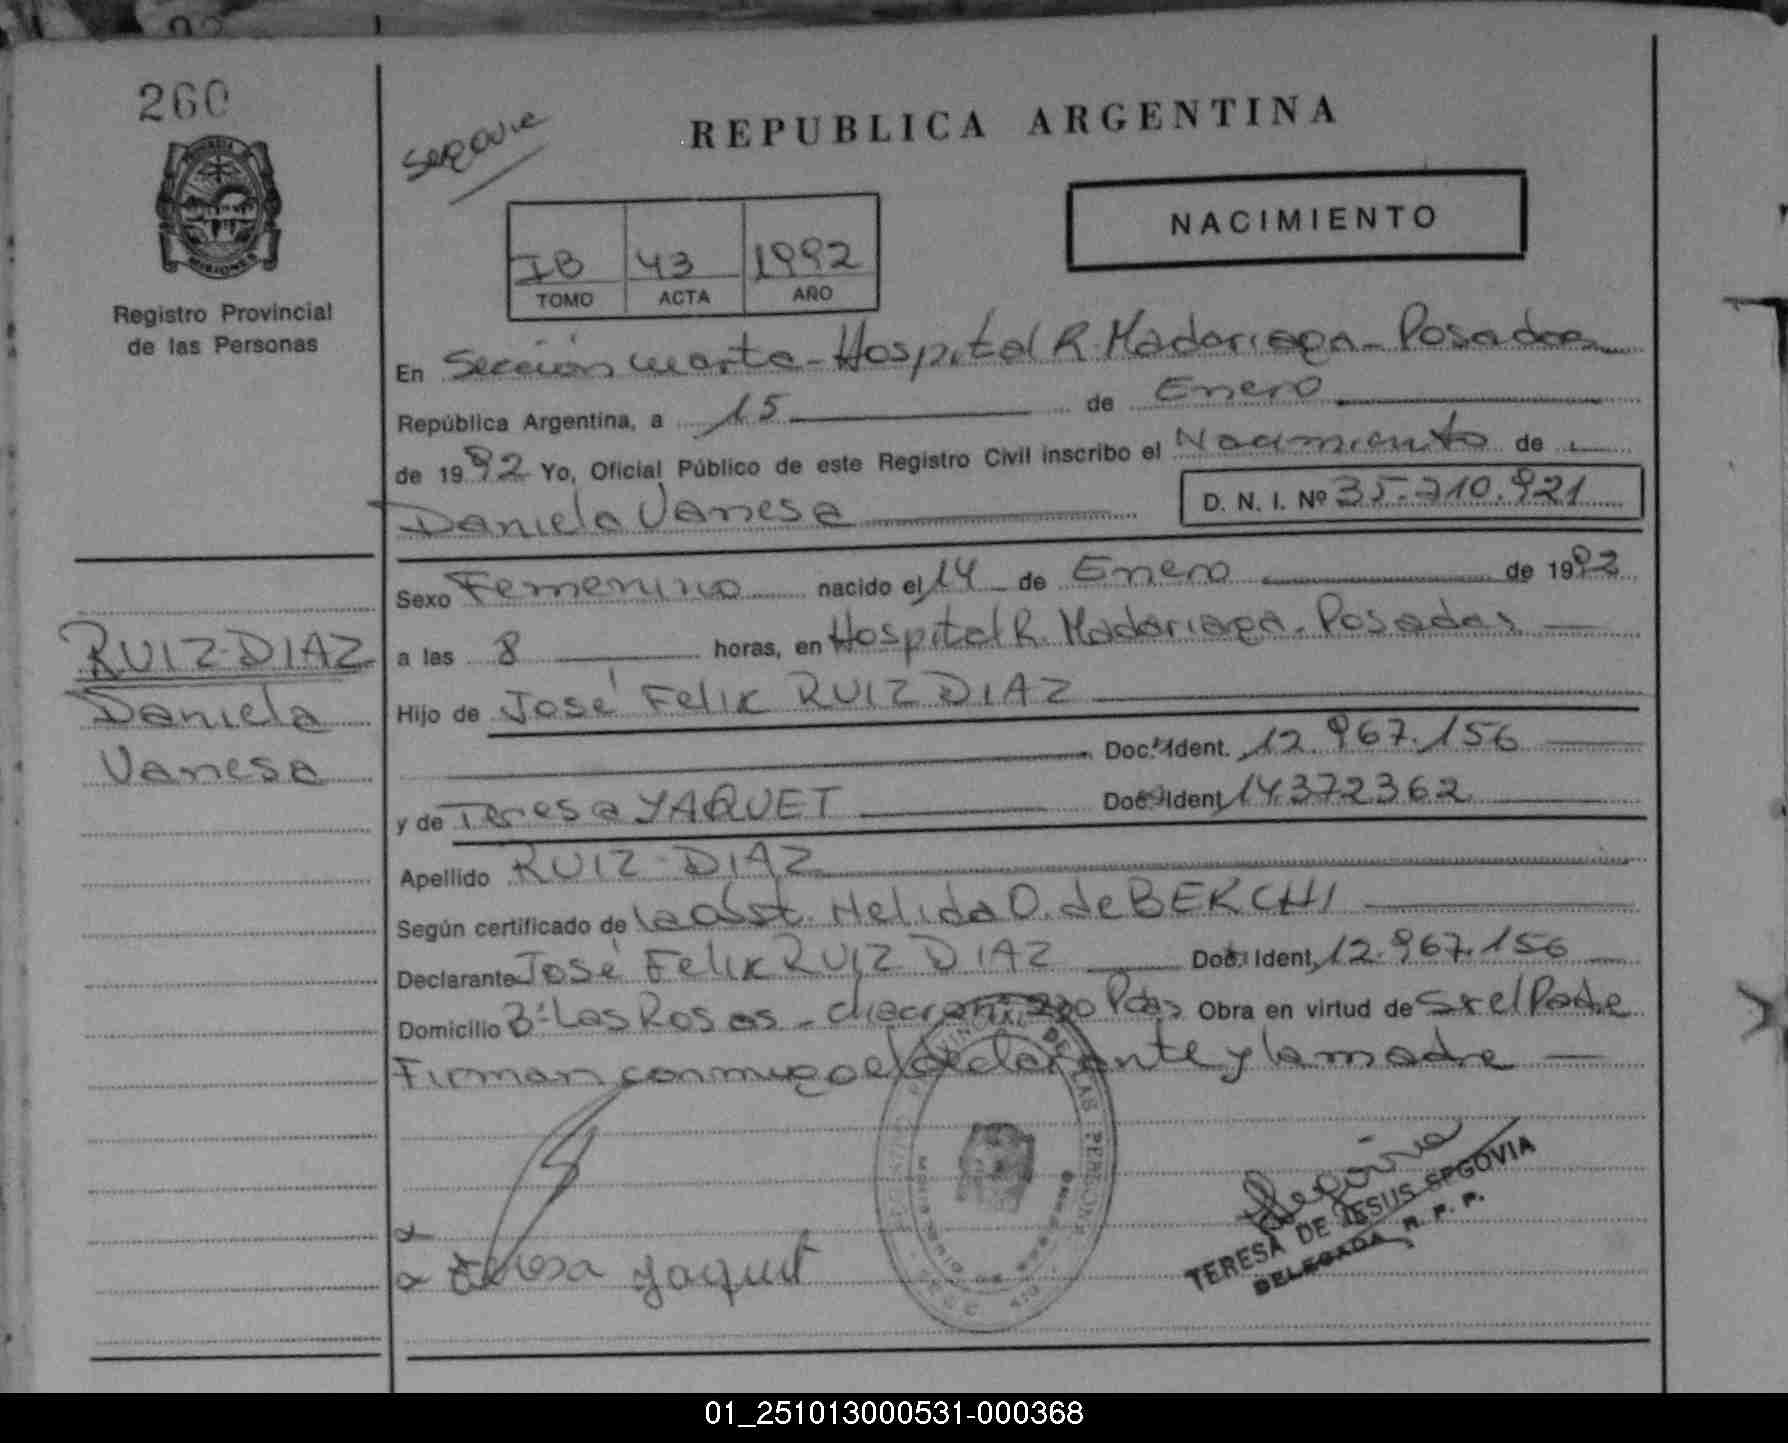 260
Segovia
REPUBLICA ARGENTINA
NACIMIENTO
IB 43 1992
TOMO ACTA AÑO
MISIONES
Registro Provincial
de las Personas
En Sección cuarta - Hospital R. Madariaga - Posadas
República Argentina, a 15 de Enero
de 1992 Yo, Oficial Público de este Registro Civil inscribo el Nacimiento de
Daniela Vanesa D. N. I. Nº 35.710.921
Sexo Femenino nacido el 14 de Enero de 1992
a las 8 horas, en Hospital R. Madariaga - Posadas
RUIZ-DIAZ
Daniela
Vanesa
Hijo de José Felix RUIZ DIAZ
Doc. Ident. 12.967.156
y de Teresa YAQUET Doc. Ident. 14372362
Apellido RUIZ-DIAZ
Según certificado de la obst. Nelida O. de BERCHI
Declarante José Felix RUIZ DIAZ Doc. Ident. 12.967.156
Domicilio Bº Las Rosas - Pdas Obra en virtud de Ser el Padre
Firman conmigo el declarante y la madre
DE LAS PERSONAS
Teresa Yaquet
Segovia
TERESA DE JESUS SEGOVIA
DELEGADA R. P. P.
01_251013000531-000368